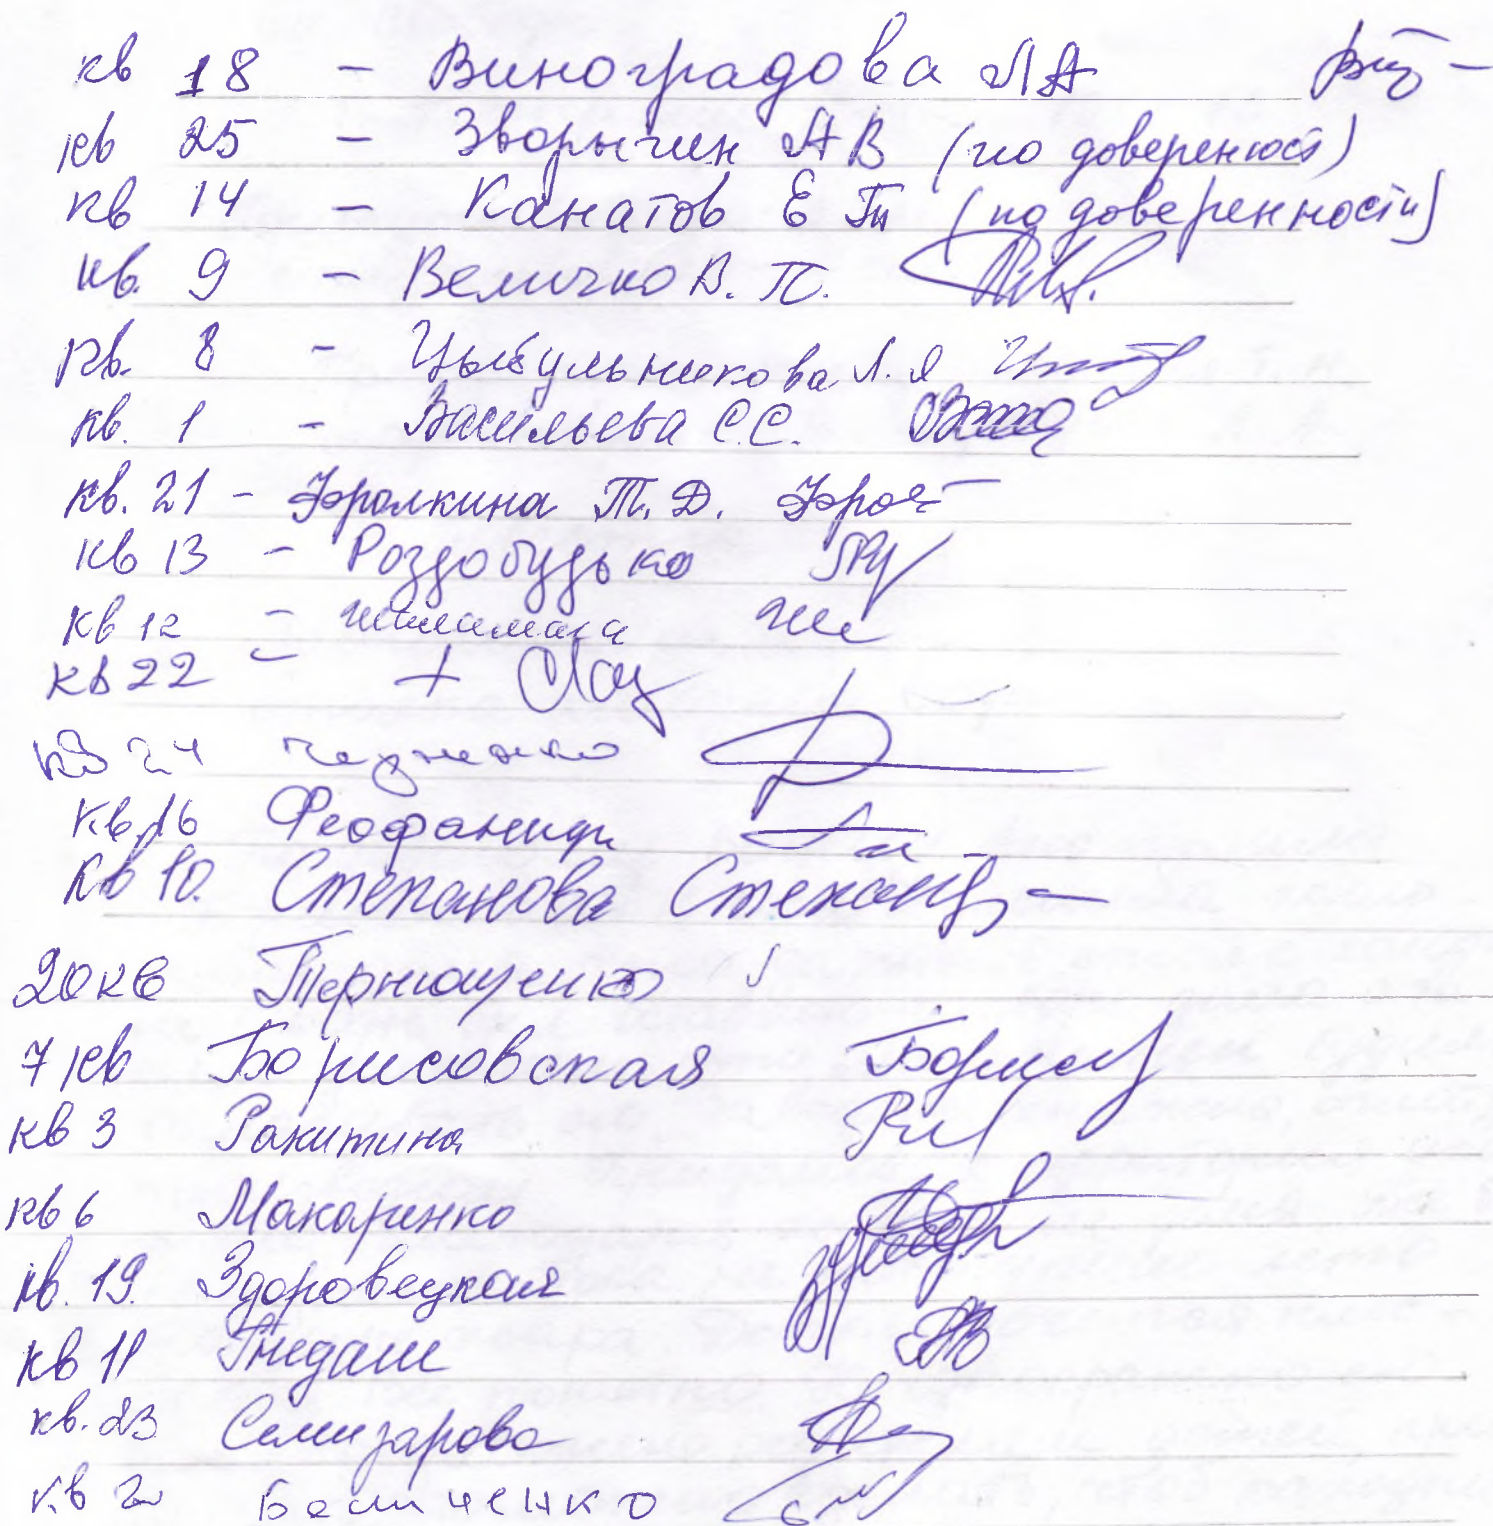 кв 18 – Виноградова Л А
кв 25 – Зворыгин А В (по доверенност)
кв 14 – Канатов Е Ти (по доверенности)
кв. 9 – Величко В. П.
кв. 8 – Цыбульникова Л. Я
кв. 1 – Васильева С.С.
кв. 21 – Фролкина Т. Д. Фрол
кв 13 – Роздобудько
кв 12 –
кв 22 – +
кв 24
кв. 16 Феофаниди
кв 10. Степанова Степан
20 кв Тернющенко
7 кв Борисовская Борис
кв 3 Ракитина
кв 6 Макаренко
кв. 19. Здоровецкая
кв 11 Гнедаш
кв. 23 Семизарова
кв 2